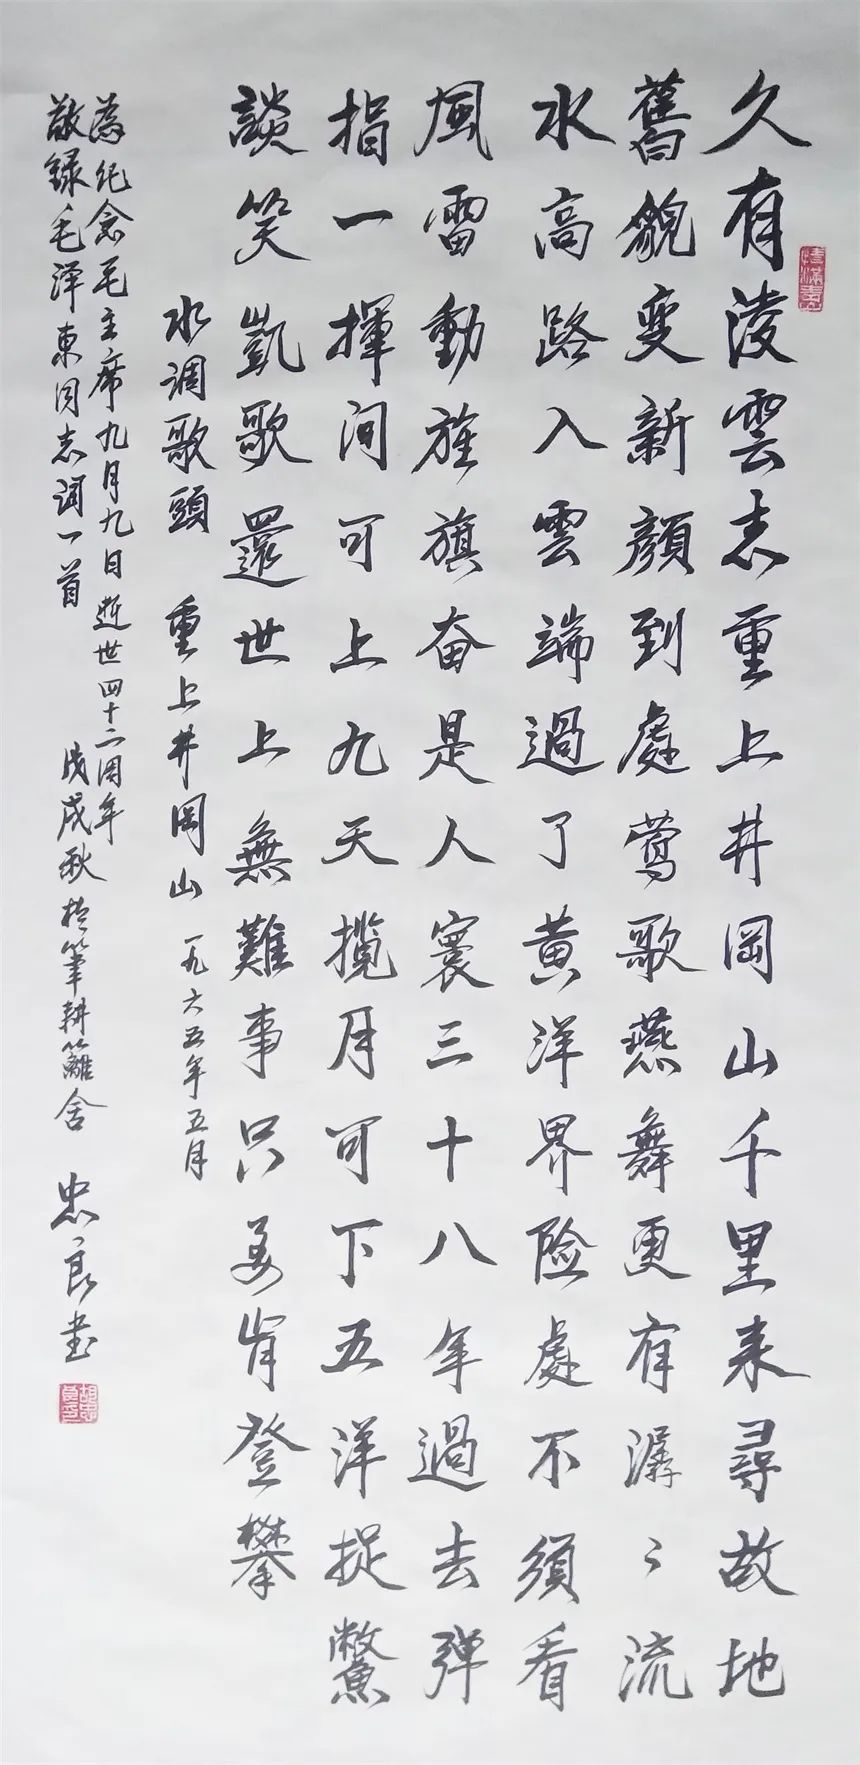 久有淩雲志重上井岡山千里来尋故地
舊貌变新顏到處鶯歌燕舞更有潺〻流
水高路入雲端過了黄洋界險處不須看
風雷動旌旗奋是人寰三十八年過去弹
指一揮间可上九天揽月可下五洋捉鱉
談笑凱歌還世上無難事只要肯登攀
水调歌頭 重上井岡山 一九六五年五月
為纪念毛主席九月九日逝世四十二周年
敬録毛泽東同志词一首 戊戌秋於筆耕籬舍 忠良書